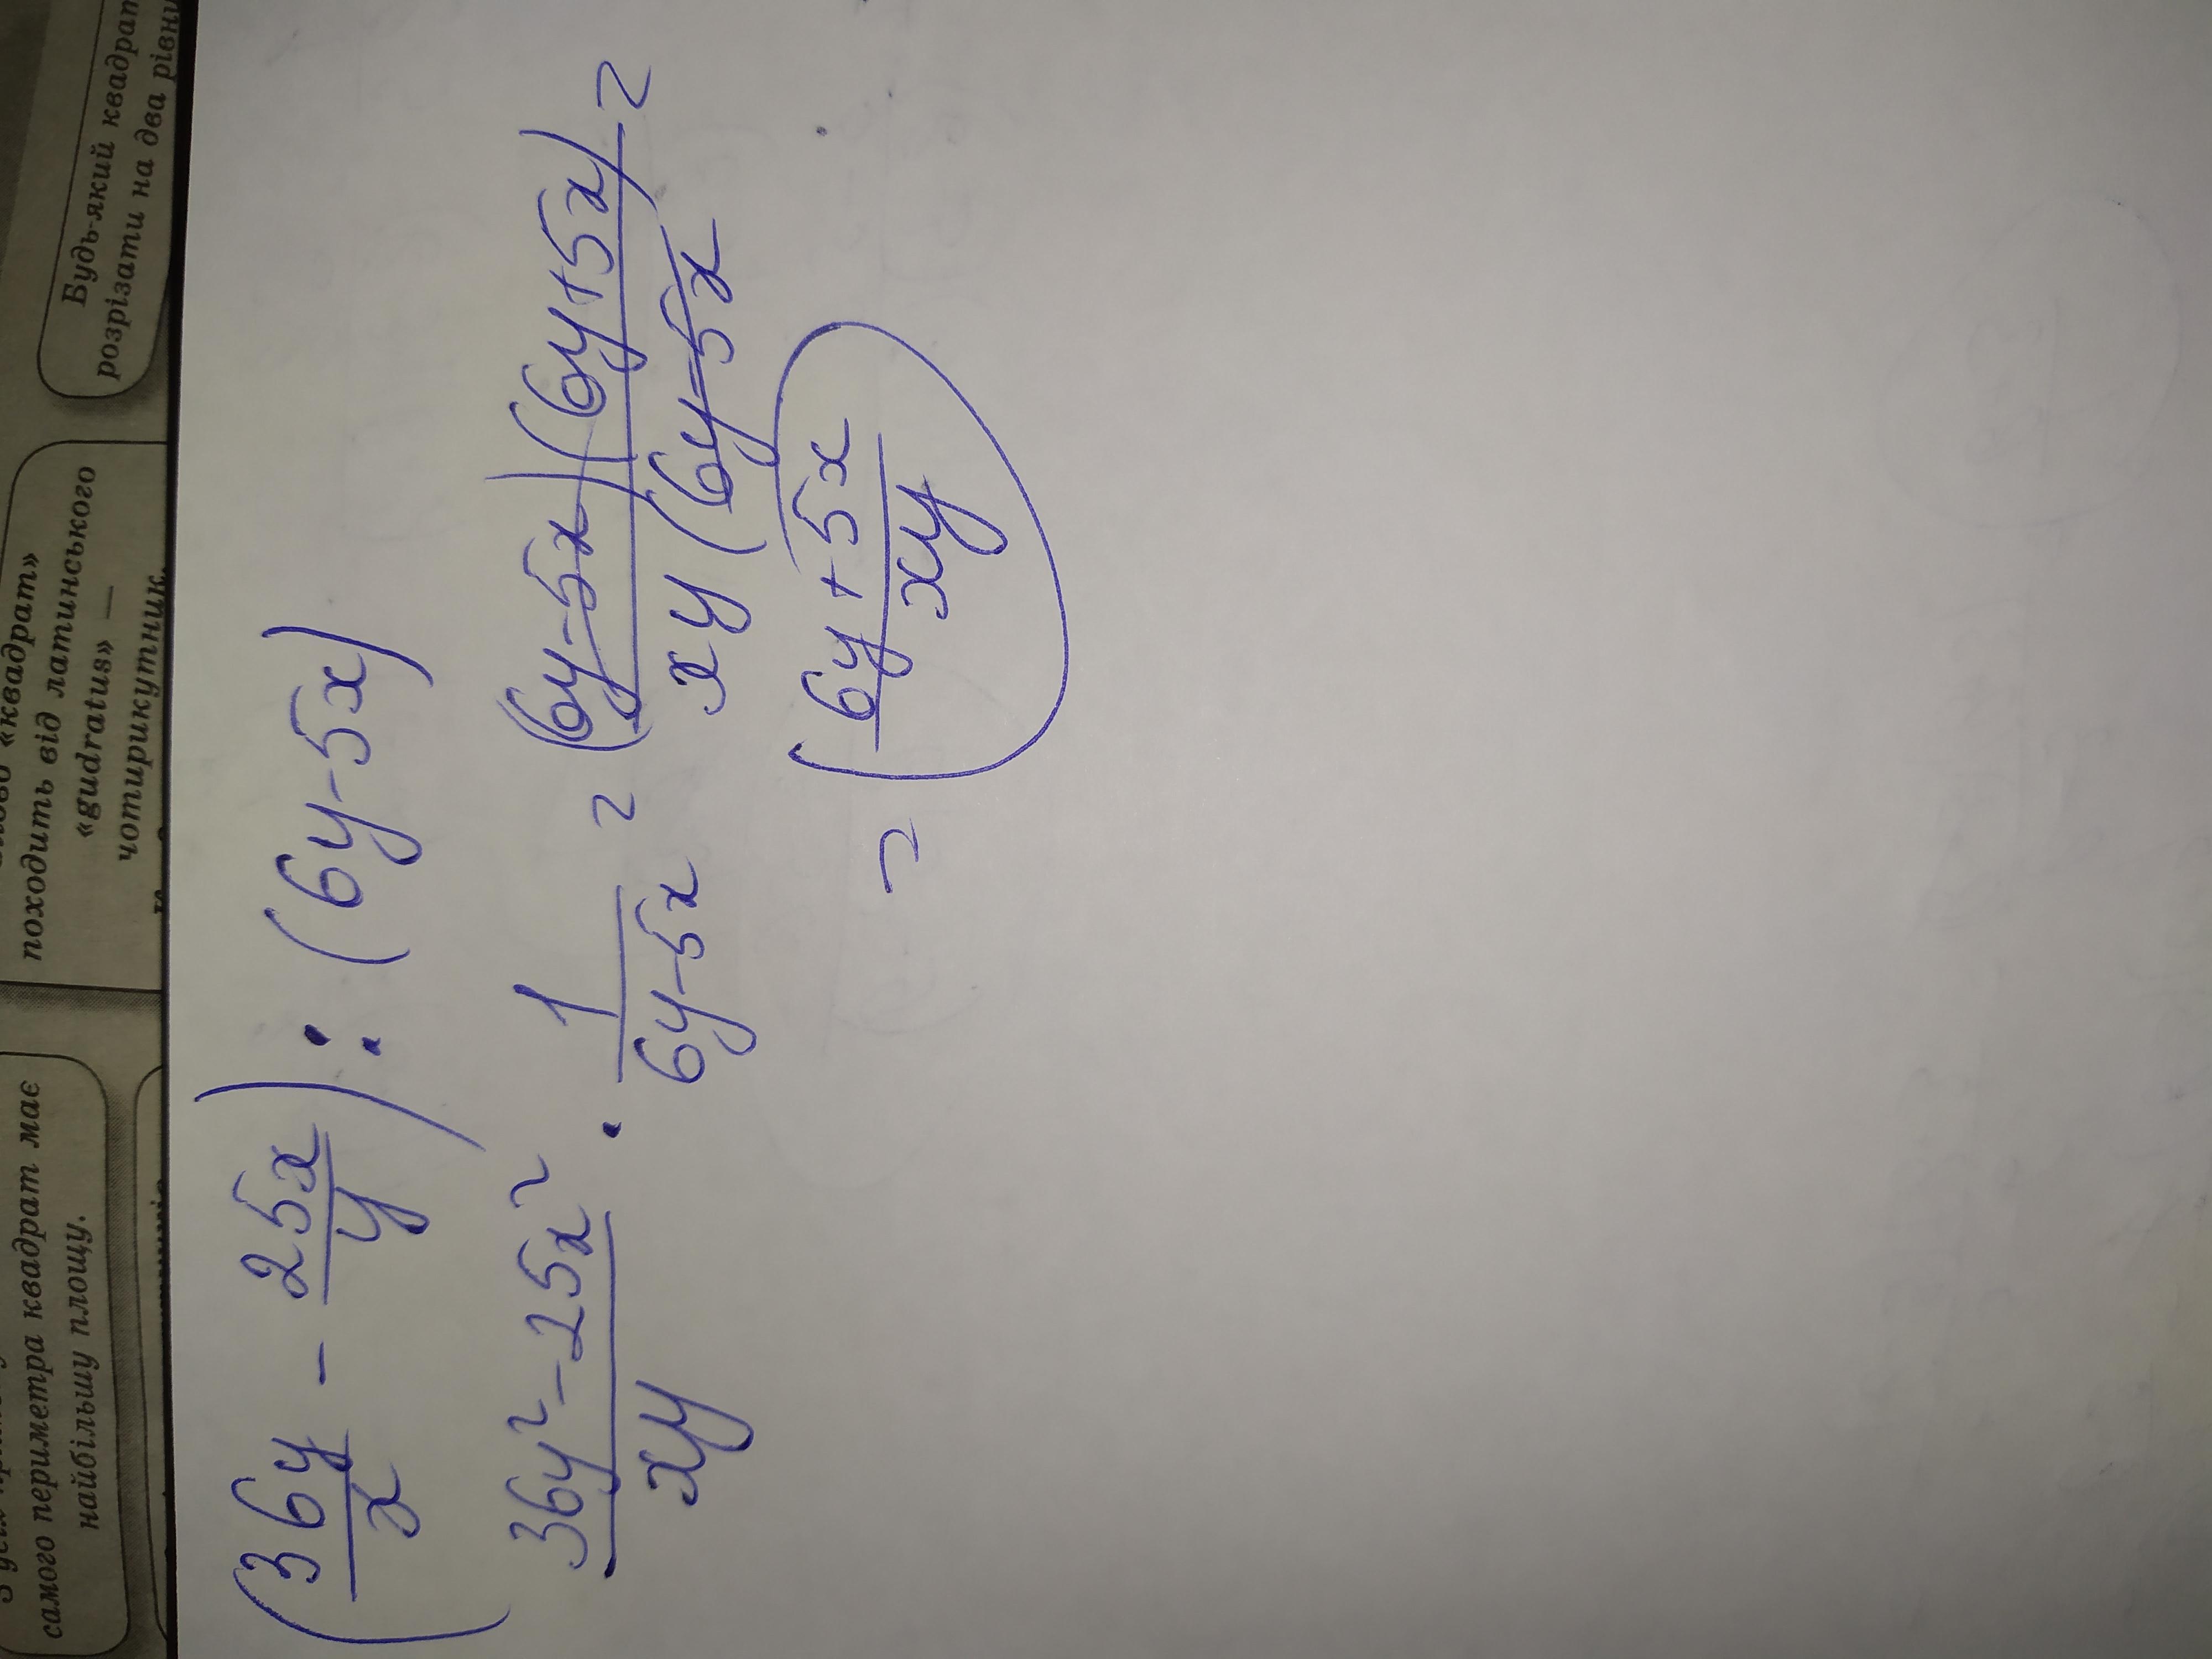 самого периметра квадрат має
найбільшу площу.
«квадрат»
походить від латинського
«gudratus» —
чотирикутник.
Будь-який квадрат
розрізати на два рівні
(36y/x - 25x/y) : (6y-5x)
36y²-25x²/xy · 1/6y-5x = (6y-5x)(6y+5x)/xy(6y-5x =
= 6y+5x/xy